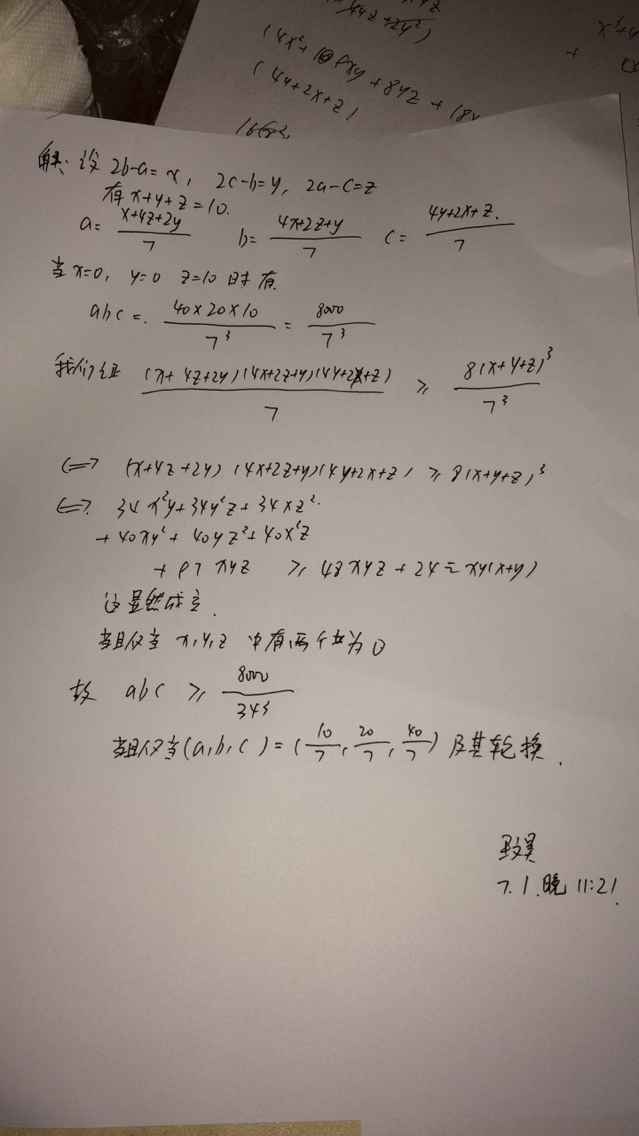 4yz+2y²)
(4x²+ 18xy + 8yz + 18x
(4y+2x+z)
解:设 2b-a=x, 2c-b=y, 2a-c=z
有 x+y+z=10.
a= \frac{x+4z+2y}{7} b= \frac{4x+2z+y}{7} c= \frac{4y+2x+z.}{7}
当 x=0, y=0 z=10 时有
abc = \frac{40×20×10}{7^3} = \frac{8000}{7^3}
我们证 \frac{(x+4z+2y)(4x+2z+y)(4y+2x+z)}{7} ≥ \frac{8(x+y+z)^3}{7^3}
<=> (x+4z+2y)(4x+2z+y)(4y+2x+z) ≥ 8(x+y+z)^3
<=> 34x²y+34y²z+34xz²
+40xy²+40yz²+40x²z
+87xyz ≥ 48xyz+24Σxy(x+y)
这显然成立.
当且仅当 x,y,z 中有两个为0
故 abc ≥ \frac{8000}{343}
当且仅当(a,b,c)=(\frac{10}{7},\frac{20}{7},\frac{40}{7}) 及其轮换.
7.1.晚 11:21.